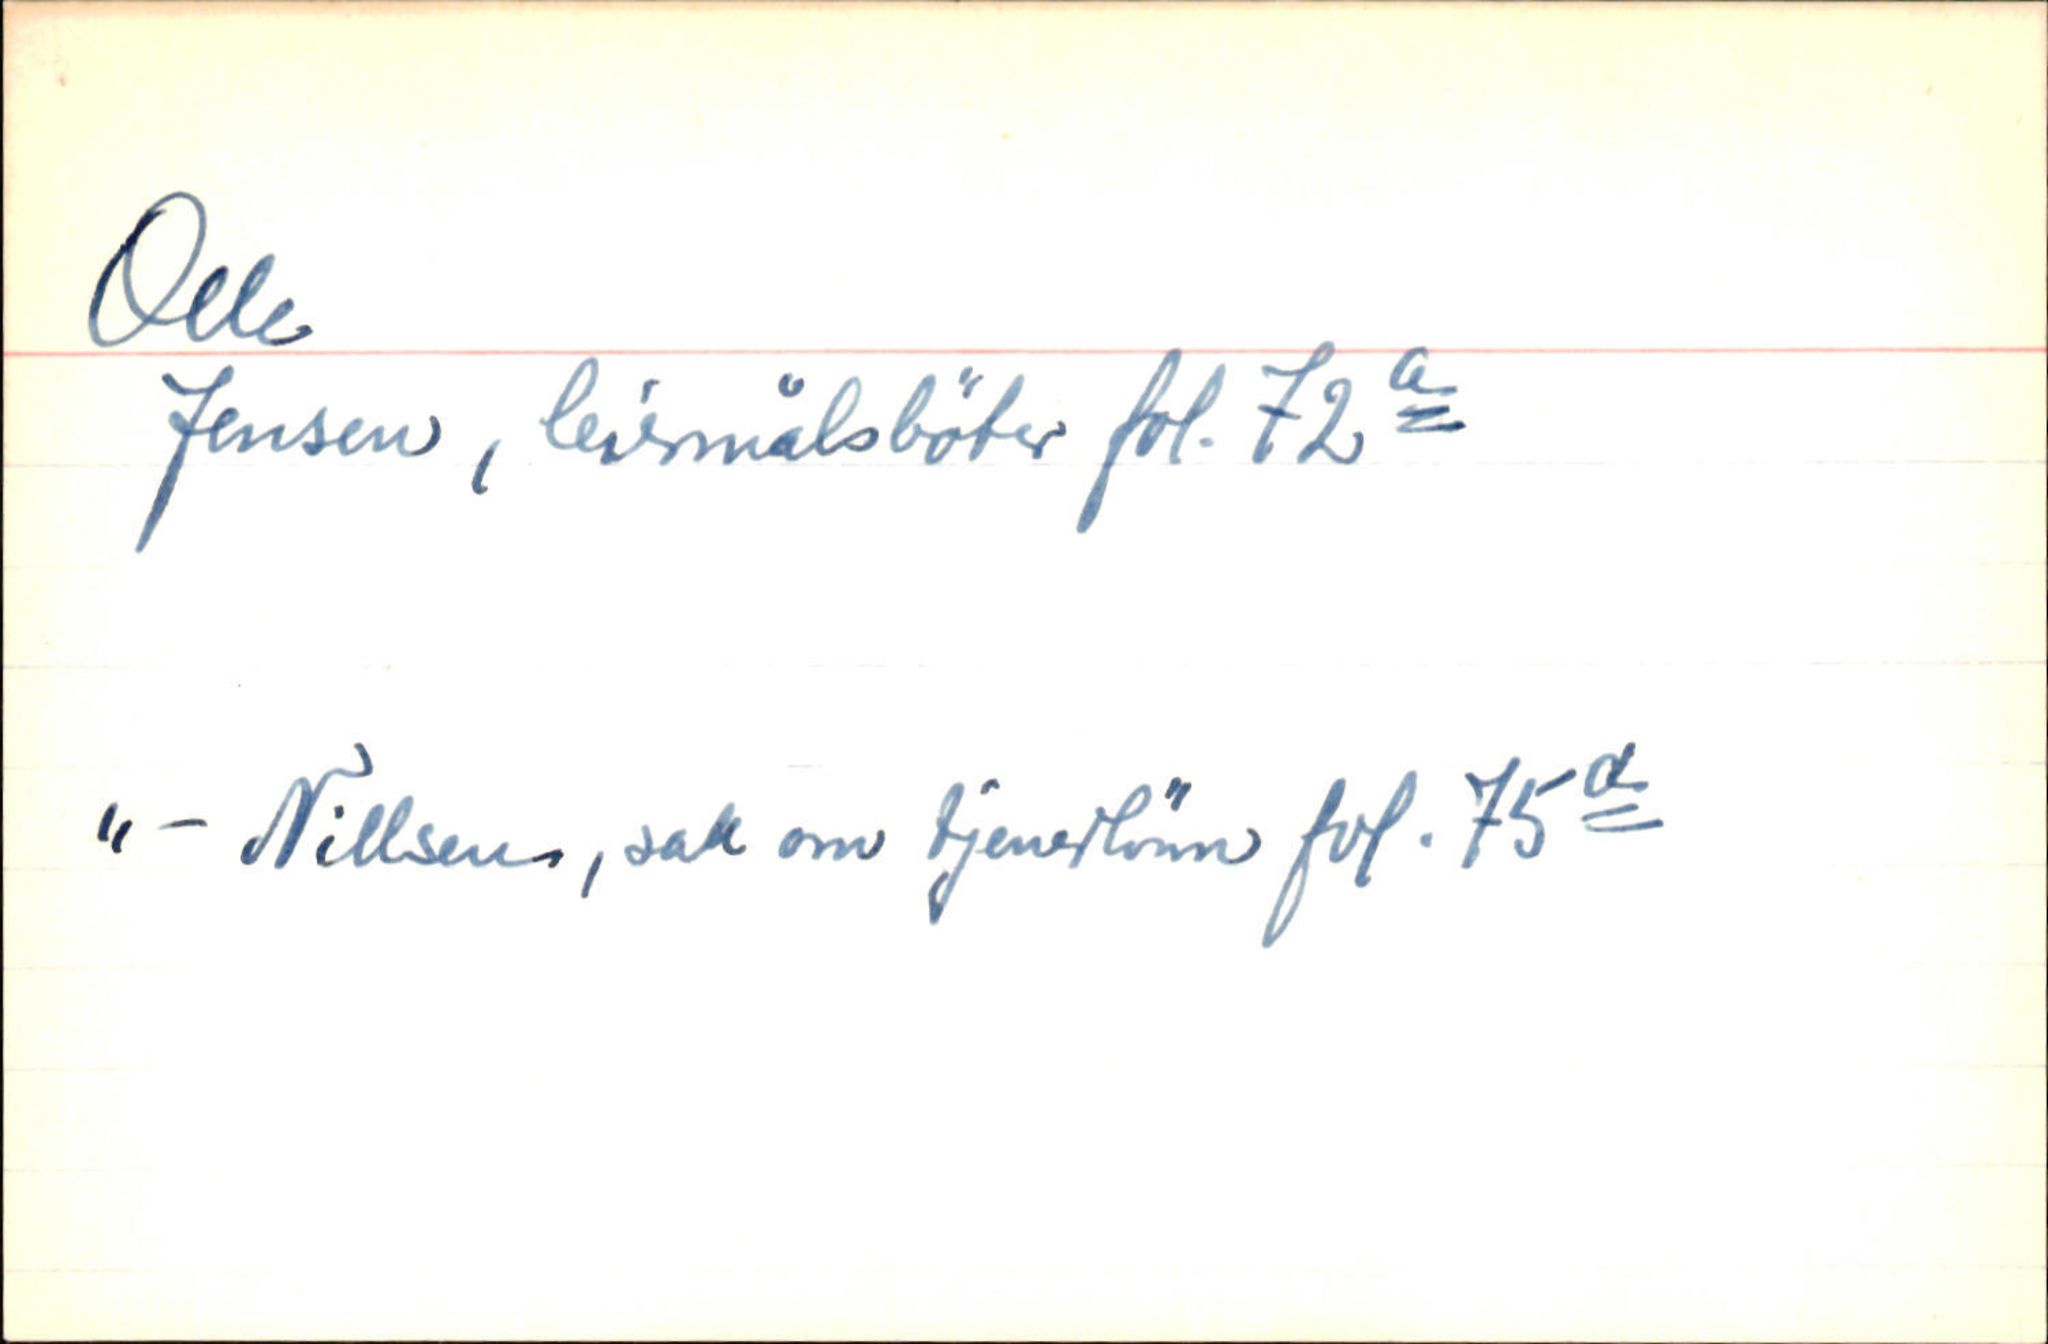 Olle
Jensen, leiermålsböter fol. 72a
"- Nillsen, sak om tjenerlönn fol. 75a